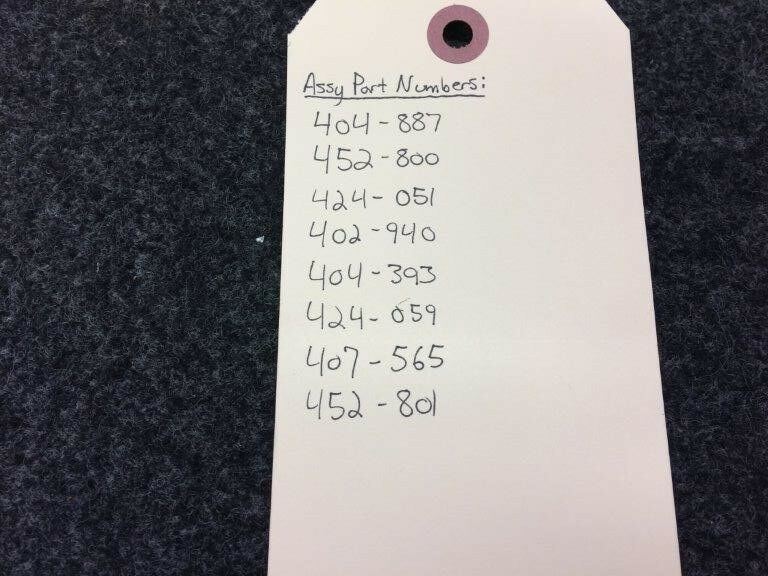 Assy Part Numbers:
404-887
452-800
424-051
402-940
404-393
424-059
407-565
452-801